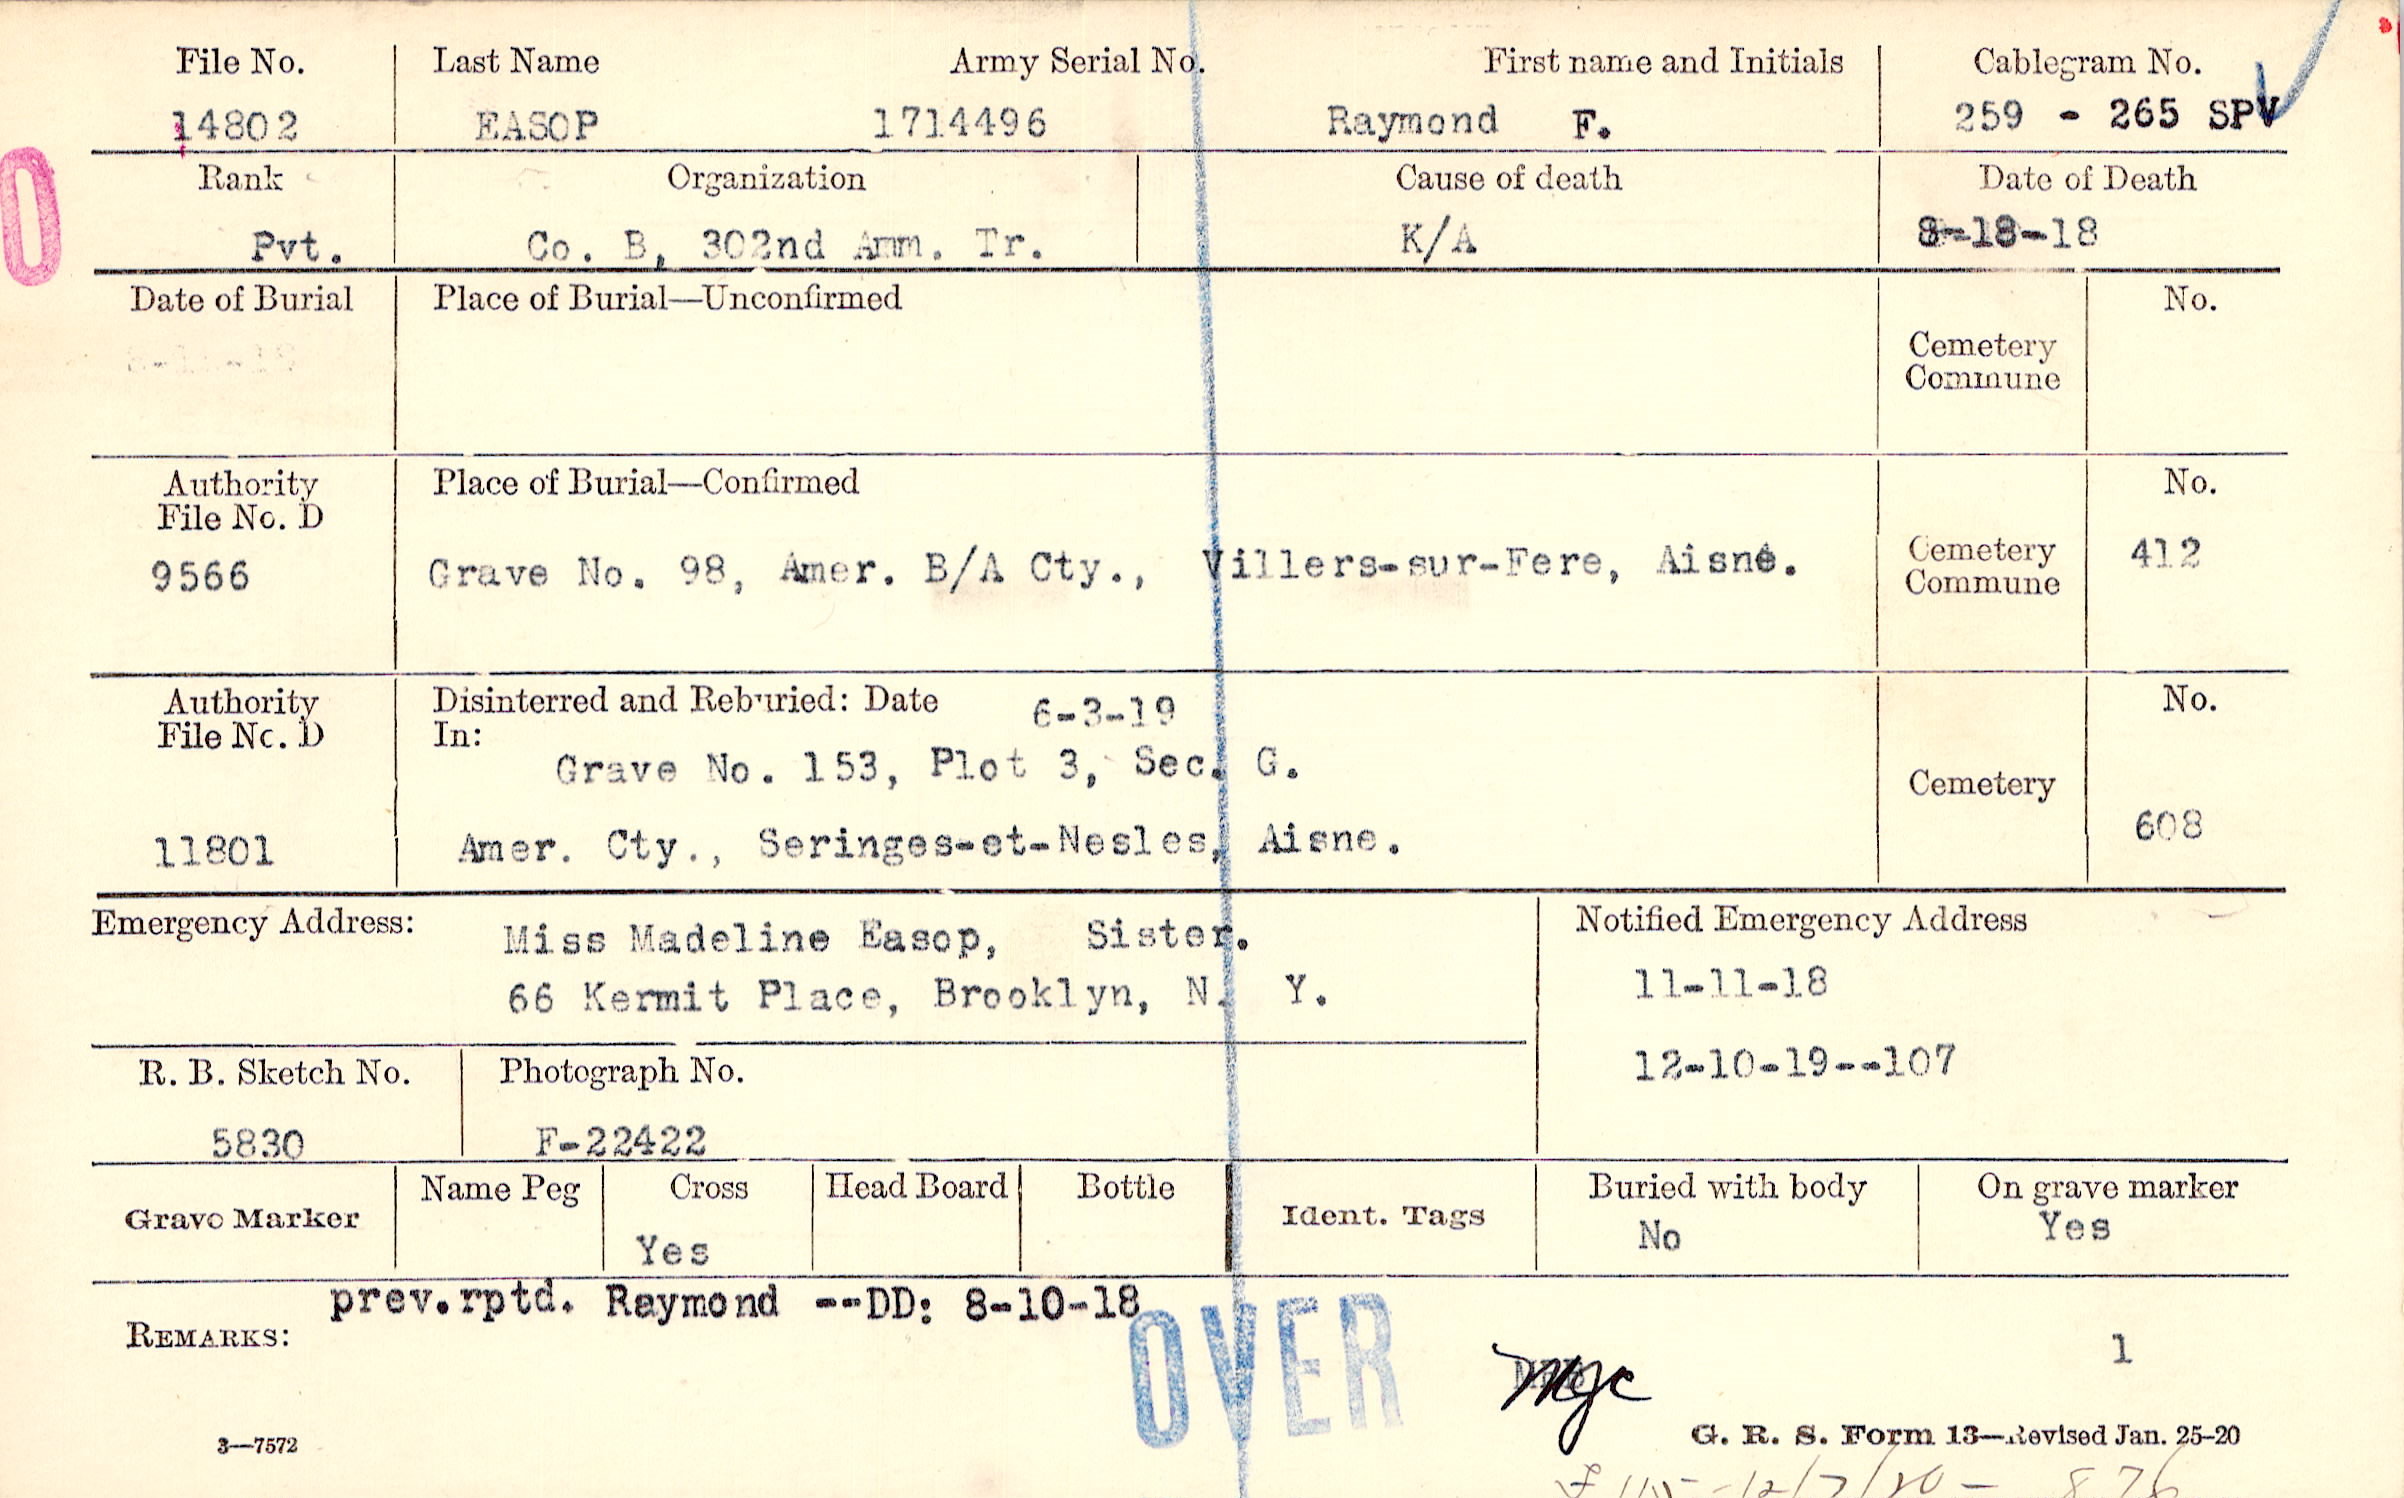 File No. Last Name Army Serial No. First name and Initials Cablegram No.
14802 EASOP 1714496 Raymond F. 259 - 265 SPV
Rank Organization Cause of death Date of Death
Pvt. Co. B, 302nd Amm. Tr. K/A 8-18-18
Date of Burial Place of Burial—Unconfirmed No.
Cemetery
Commune
Authority Place of Burial—Confirmed No.
File No. D
9566 Grave No. 98, Amer. B/A Cty., Villers-sur-Fere, Aisne. Cemetery 412
Commune
Authority Disinterred and Reburied: Date 6-3-19 No.
File No. D In:
Grave No. 153, Plot 3, Sec. G.
Cemetery
11801 Amer. Cty., Seringes-et-Nesles, Aisne. 608
Emergency Address: Miss Madeline Easop, Sister. Notified Emergency Address
66 Kermit Place, Brooklyn, N. Y. 11-11-18
R. B. Sketch No. Photograph No. 12-10-19--107
5830 F-22422
Grave Marker Name Peg Cross Head Board Bottle Ident. Tags Buried with body On grave marker
Yes No Yes
prev.rptd. Raymond --DD: 8-10-18
REMARKS:
OVER
1
mjc
3—7572
G. R. S. Form 13—Revised Jan. 25-20
12/7/20 - 876